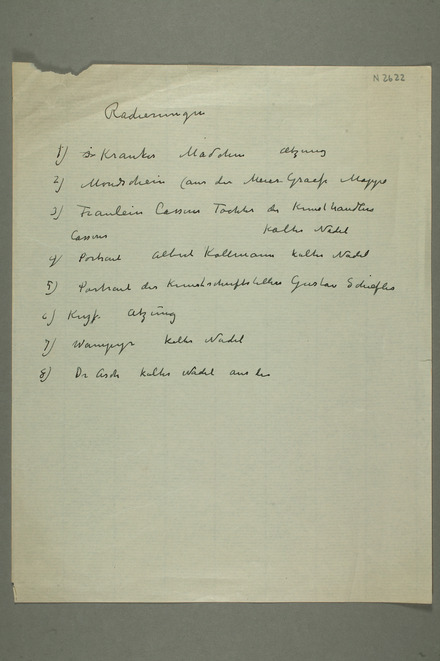 N 2622
Radierungen
1) Krankes Mädchen Ätzung
2) Mondschein (aus der Meier-Graefe Mappe
3) Fräulein Cassirer Tochter des Kunsthändlers
Cassirer Kalte Nadel
4) Portrait Albert Kollmann kalte Nadel
5) Portrait des Kunstschriftstellers Gustav Schiefler
6) Kuss. Ätzung
7) Wampyr kalte Nadel
8) Dr Asch kalte Nadel aus